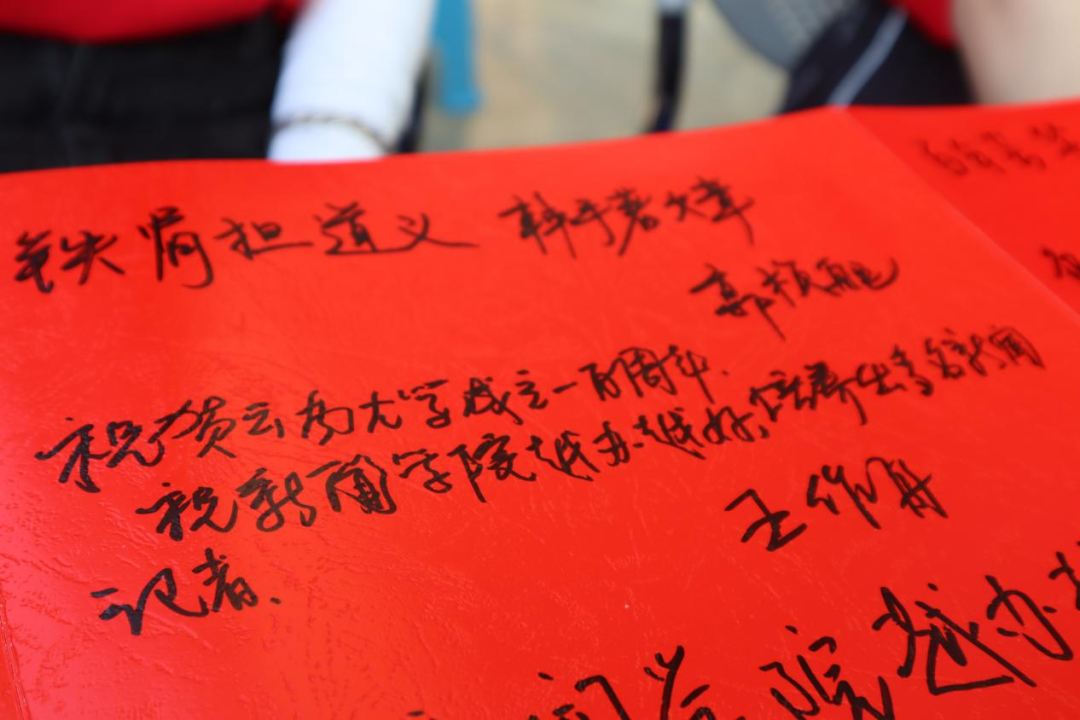 铁肩担道义 辣手著文章
祝贺云南大学成立一百周年.
祝新闻学院越办越好,培养出多名新闻
王作舟
记者.
闻学院越办